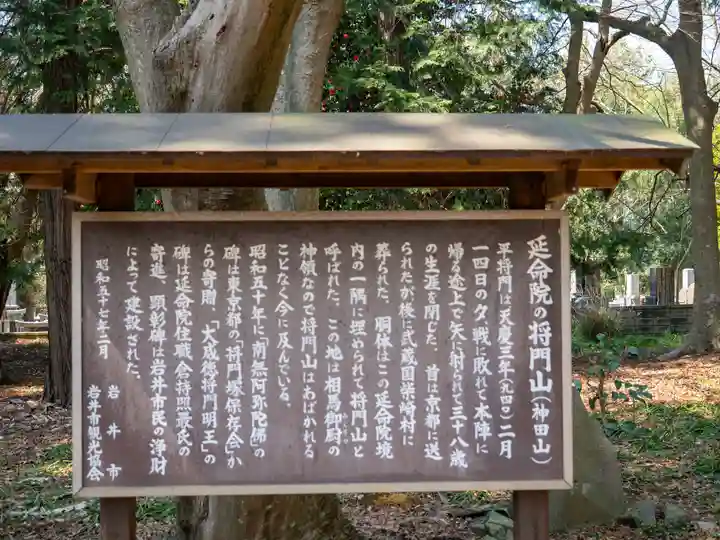 延命院の将門山(神田山)
平将門は天慶三年(九四〇)二月
一四日の夕戦に敗れて本陣に
帰る途上で矢に射られて三十八歳
の生涯を閉じた。首は京都に送
られたが後に武蔵国柴崎村に
葬られた。胴体はこの延命院境
内の一隅に埋められて将門山と
呼ばれた。この地は相馬御厨の
神領なので将門山はあばかれる
ことなく今に及んでいる。
昭和五十年に南無阿弥陀佛の
碑は東京都の「将門塚保存会」か
らの寄贈、「大威徳将門明王」の
碑は延命院住職倉持照最氏の
寄進、顕彰碑は岩井市民の浄財
によって建設された。
昭和五十七年二月
岩井市
岩井市観光協会